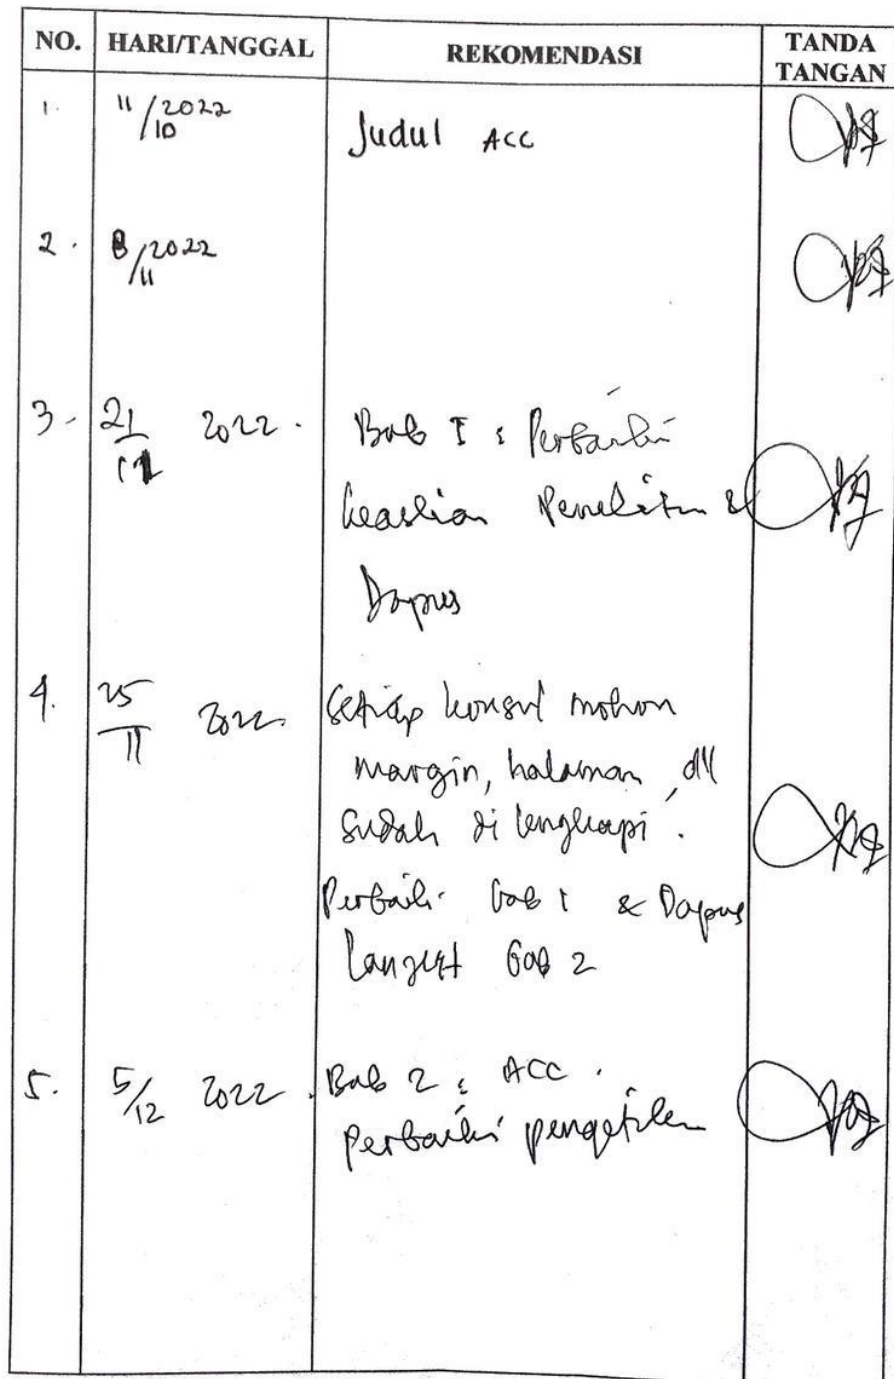 NO. HARI/TANGGAL REKOMENDASI TANDA TANGAN
1. 11/10 2022 Judul ACC
2. 8/11 2022
3. 21/11 2022. Bab I : Perbaiki
keaslian Penelitian &
Dapus
4. 25/11 2022. Setiap konsul mohon
margin, halaman, dll
sudah di lengkapi.
Perbaiki bab 1 & Dapus
lanjut bab 2
5. 5/12 2022. Bab 2 : ACC.
perbaiki pengetikan